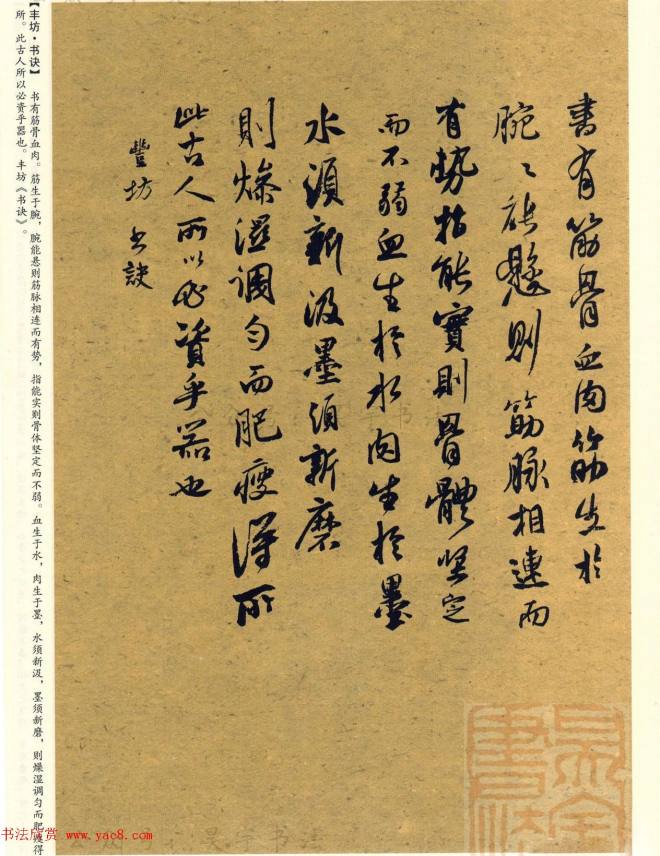 書有筋骨血肉筋生於
腕腕能懸則筋脉相連而
有勢指能實則骨體坚定
而不弱血生於水肉生於墨
水須新汲墨須新磨
則燥湿調匀而肥瘦得所
此古人所以必資乎器也
豐坊書訣
【丰坊·书诀】 书有筋骨血肉。筋生于腕，腕能悬则筋脉相连而有势，指能实则骨体坚定而不弱。血生于水，肉生于墨，水须新汲，墨须新磨，则燥湿调匀而肥瘦得
所。此古人所以必资乎器也。丰坊《书诀》。
书法欣赏 www.yac8.com